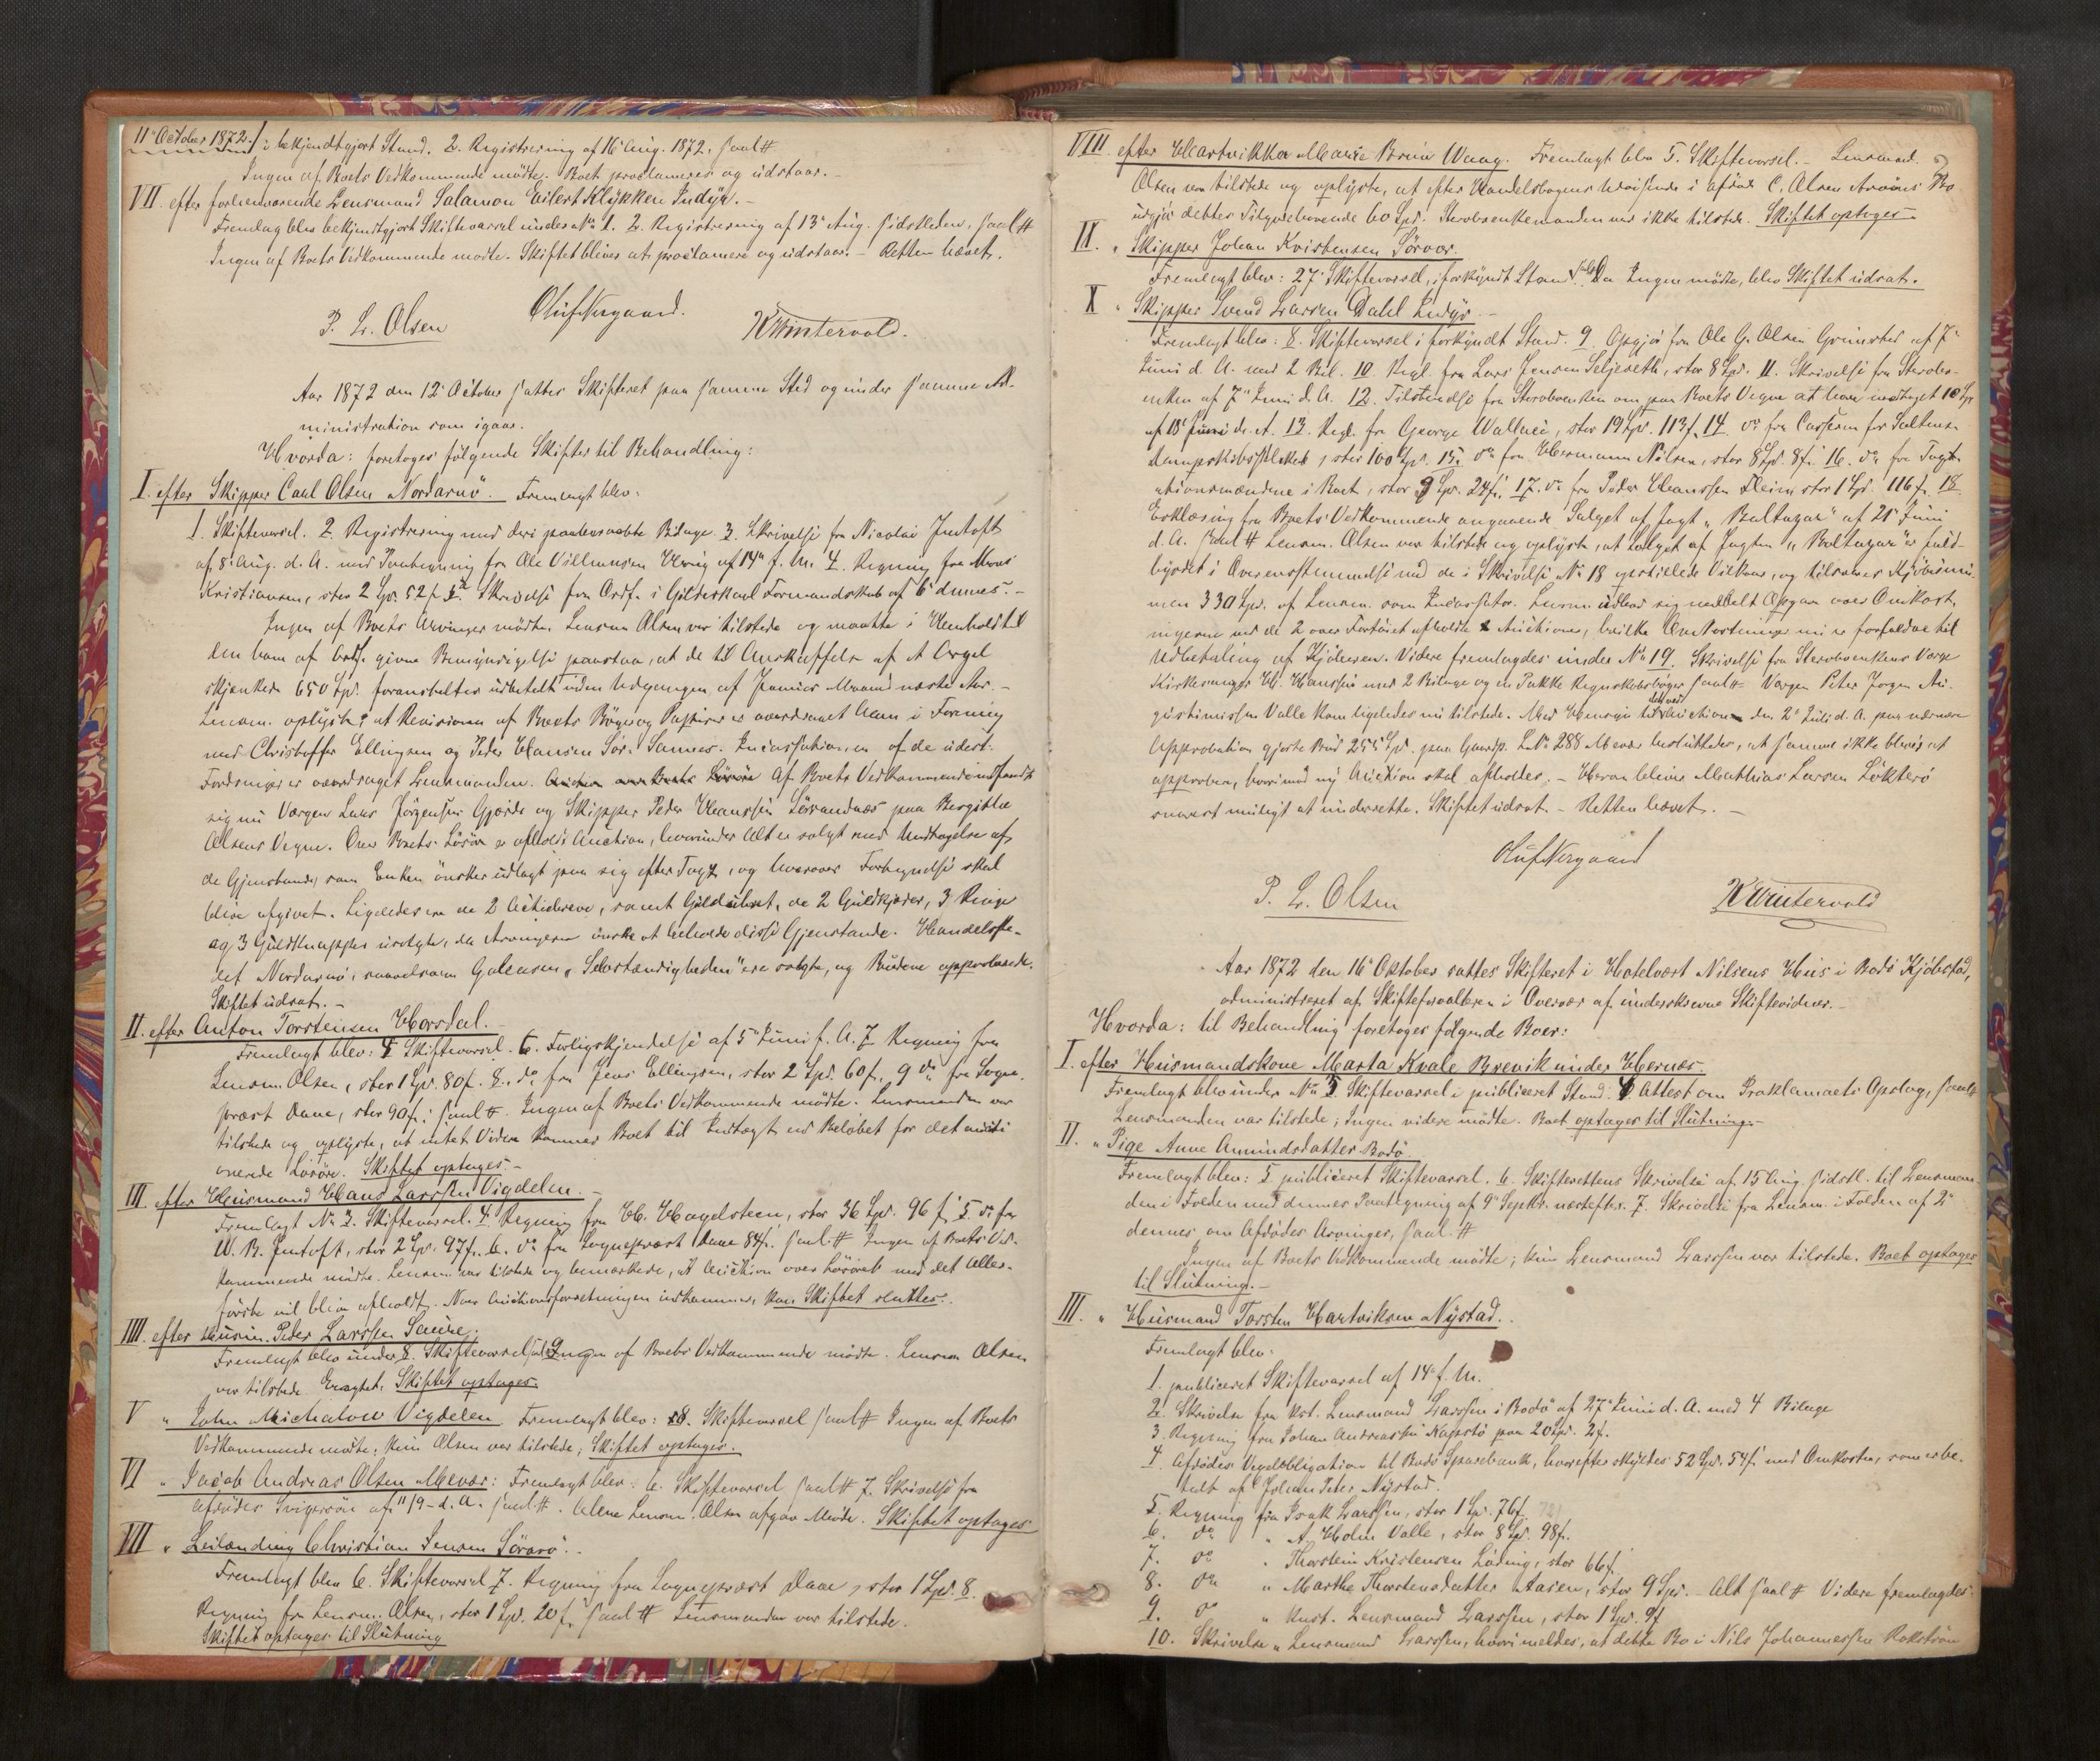 11te October 1872. i bekjendtgjort Stand. 2. Registrering af 16 Aug. 1872, saal #
Ingen af Boets Vedkommende mödte. Boet proclameres og udstaar. -
VII. efter forhenværende Lensmand Salamon Eilert Klykken Indyr. -
Fremlag blev bekjendtgjort Skiftevarsel under No 1. 2. Registrering af 13 Aug. sidstleden, saal #
Ingen af Boets Vedkommende mödte. Skiftet bliver at proclamere og udstaar. - Retten hævet.
P. L. Olsen Oluf Nergaard. K Wintervold.
Aar 1872 den 12te October sattes Skifteret paa samme Sted og under samme Ad-
ministration som igaar.
Hvorda: foretoges følgende Skifter til Behandling:
I. efter Skipper Carl Olsen Nordarnö. Fremlagt blev:
1. Skiftevarsel. 2. Registrering med deri paaberaabte Bilage. 3. Skrivelse fra Nicolai Jentoft
af 8 Aug. d. A. med Paategning fra Ole Villumsen af 14de f. M. 4. Regning fra
Kristiansen, stor 2 Spd. 52 f. 5. Skrivelse fra Ordf. i Gildeskaal Formandskab af 6te dennes. -
Ingen af Boets Arvinger mödte. Lensm. Olsen var tilstede og maatte i Henhold til
den ham af Ordf. givne Bemyndigelse paastaa, at de til Anskaffelse af et Orgel
skjænkede 650 Spd. foranstaltes udbetalt inden Udgangen af Januar Maaned næste Aar. -
Lensm. oplyste, at Revisionen af Boets Böger og Papirer er overdraget ham i Forening
med Christoffer Ellingsen og Peder Hansen Sör. Sannes. Incassationen af de udest.
Fordringer er overdraget Lensmanden. Af Boets Vedkommende indfandt
sig nu Værgen Lars Jörgensen Gjærde og Skipper Peder Hanssen Sörsandnæs paa Bergithe
Olsens Vegne. Over Boets Lösöre er afholdt Auction, hvorunder Alt er solgt med Undtagelse af
de Gjenstande, som Enken önsker udlagt paa sig efter Taxt, og hvorover Fortegnelse skal
blive afgivet. Ligeledes ere de 2 Actiebreve, samt Gulduhret, de 2 Guldkjæder, 3 Ringe
og 3 Guldknapper usolgte, da Arvingerne önske at beholde disse Gjenstande. Handelsste-
det Nordarnö, saavelsom Galeasen "Selvstændigheden" ere solgte, og Budene approberede.
Skiftet udsat. -
II. efter Anton Torstensen Horsdal.
Fremlagt blev: 5 Skiftevarsel. 6. Forligskjendelse af 5te Juni f. A. 7 Regning fra
Lensm. Olsen, stor 1 Spd. 80 f. 8. do fra Jens Ellingsen, stor 2 Spd. 60 f., 9 do fra Sogne-
præst Daae, stor 90 f.; saal #. Ingen af Boets Vedkommende mödte. Lensmanden var
tilstede og oplyste, at intet Videre kommer Boet til Indtægt end Belöbet for det aucti-
onerede Lösöre. Skiftet optages. -
III. efter Husmand Hans Larssen Vigdelen. -
Fremlagt No 3. Skiftevarsel. 4. Regning fra H. Hagelsteen, stor 36 Spd. 96 f. 5. do fra
W. B. Jentoft, stor 2 Spd. 97 f. 6. do fra Sognepræst Daae 84 f. saal #. Ingen af Boets Ved-
kommende mödte. Lensm. var tilstede og bemærkede, at Auction over Lösöret med det Aller-
første vil blive afholdt. Naar Auctionsforretningen indkommer, kan Skiftet sluttes.
IIII. efter Husm. Peder Larssen Saure.
Fremlagt blev under 8. Skiftevarsel, saal # Ingen af Boets Vedkommende mödte. Lensm. Olsen
var tilstede. Eragtet: Skiftet optages.
V " John Michalow Vigdelen. Fremlagt blev: 8. Skiftevarsel saal # Ingen af Boets
Vedkommende mödte. Kun Olsen var tilstede; Skiftet optages.
VI " Jacob Andreas Olsen Mevær: Fremlagt blev: 6. Skiftevarsel, saal # 7. Skrivelse fra
Afdödes Svigersön af 11/9 d. A. saal #. Alene Lensm. Olsen afgav Möde. Skiftet optages
VII " Leilænding Christian Jensen Sörarö. -
Fremlagt blev 6. Skiftevarsel 7. Regning fra Sognepræst Daae, stor 1 Spd. 8.
Regning fra Lensm. Olsen, stor 1 Spd. 20 f., saal # Lensmanden var tilstede.
Skiftet optages til Slutning
VIII. efter Hartvikka Marie Bruun Waag. Fremlagt blev 5. Skiftevarsel. - Lensmand.
Olsen var tilstede og oplyste, at efter Handelsbogens Udvisende i afdøde C. Olsen Arnöens Bo
udgjör dettes Tilgodehavende 60 Spd. Sterboenkemanden var ikke tilstede. Skiftet optages -
IX. " Skipper Johan Kristensen Sörvær.
Fremlagt blev: 27 Skiftevarsel, i forkyndt Stand. saal # Da Ingen mödte, blev Skiftet udsat.
X " Skipper Svend Larsen Dahl Indyr -
Fremlagt blev: 8. Skiftevarsel i forkyndt Stand. 9. Opgjör fra Ole G. Olsen Grimsted af 7de
Juni d. A. med 2 Bil. 10. Regl. fra Lars Jensen Seljeseth, stor 8 Spd. 11. Skrivelse fra Sterbo-
enken af 7de Juni d. A. 12. Tilstaaelse fra Sterboenken om paa Boets Vegne at have modtaget 10 Spd
af 18de Juni d. A. 13. Regl. fra George Wallace, stor 19 Spd. 113 f. 14 do fra Casseren for Saltens
Dampskibsselskab, stor 100 Spd. 15. do fra Hermann Nilsen, stor 8 Spd. 8 f. 16. do fra Taxa-
tionsmændene i Boet, stor 9 Spd. 24 f. 17. do fra Peder Hanssen stor 1 Spd. 116 f. 18
Erklæring fra Boets Vedkommende angaaende Salget af Jagt "Baltazar" af 21 Juni
d. A. saal # Lensm. Olsen var tilstede og oplyste, at Salget af Jagten "Baltazar" er fuld-
byrdet i Overensstemmelse med de i Skrivelse No 18 opstillede Vilkaar, og tilsvares Kjöbesum-
men 330 Spd. af Lensm. som Incassator. Lensm. udbad sig meddelt Opgave over Omkost-
ningerne ved de 2 over Fartöiet afholdte Auctioner, hvilke Omkostninger nu er forfaldne til
Udbetaling af Kjöberen. Videre fremlagdes under No 19. Skrivelse fra Sterboenkens Værge
Kirkesanger H. Hanssen med 2 Bilage og en Pakke Regnskabsböger saal #. Værgen Peter Jørgen Au-
gustinussen Valle kom ligeledes nu tilstede. Med Hensyn til det ved Auction den 2de Juli d. A. paa nærmere
Approbation gjorte Bud 255 Spd. paa Gaardp. L. No 288 Mevær besluttedes, at samme ikke bliver at
approbere, hvorimod ny Auction skal afholdes. - Herom bliver Matthias Larsen Lökterö
snarest muligt at underrette. Skiftet udsat. - Retten hævet. -
Oluf Nergaard
P. L. Olsen K Wintervold
Aar 1872 den 16de Oktober sattes Skifteret i Hotelvært Nilsens Hus i Bodö Kjöbstad,
administreret af Skifteforvalteren i Overvær af underskrevne Skiftevidner. -
Hvorda: til Behandling foretoges følgende Boer:
I. efter Husmandskone Marta Kvale Brevik under Hernes.
Fremlagt blev under No 3 Skiftevarsel i publiceret Stand. 4 Attest om Proklamaets Opslag, saal #
Lensmanden var tilstede; Ingen videre mödte. Boet optages til Slutning. -
II. " Pige Anne Amundsdatter Bodö.
Fremlagt blev: 5. publiceret Skiftevarsel. 6. Skifterettens Skrivelse af 15 Aug. sidstl. til Lensman-
den i Folden med dennes Paategning af 9de Septbr. næstefter. 7. Skrivelse fra Lensm. i Folden af 2de
dennes om Afdödes Arvinger, saal. #
Ingen af Boets Vedkommende mödte; kun Lensmand Larssen var tilstede. Boet optages
til Slutning. -
III. " Husmand Torsten Hartviksen Nystad.
Fremlagt blev:
1. publiceret Skiftevarsel af 14de f. M.
2. Skrivelse fra kst. Lensmand Larssen i Bodö af 27de Juni d. A. med 4 Bilage
3. Regning fra Johan Andreassen paa 20 Spd. 2 f.
4. Afdödes Vexelobligation til Bodö Sparebank, hvorefter skyldes 52 Spd. 54 f med Omkostn, som er be-
talt af Johan Peter Nystad.
5. Regning fra Isak Larssen, stor 1 Spd. 76 f. 72
6. do " A. Holm Valle, stor 8 Spd. 98 f.
7. do " Thorstein Kristensen Löding, stor 66 f.
8. do " Marthe Thorstensdatter Aasen, stor 9 Spd. - Alt saal # Videre fremlagdes:
9. do " Knst. Lensmand Larssen, stor 1 Spd. 9 f
10. Skrivelse " Lensmand Larssen, hvori meldes, at dette Bo i Nils Johannessen Rokstrøm